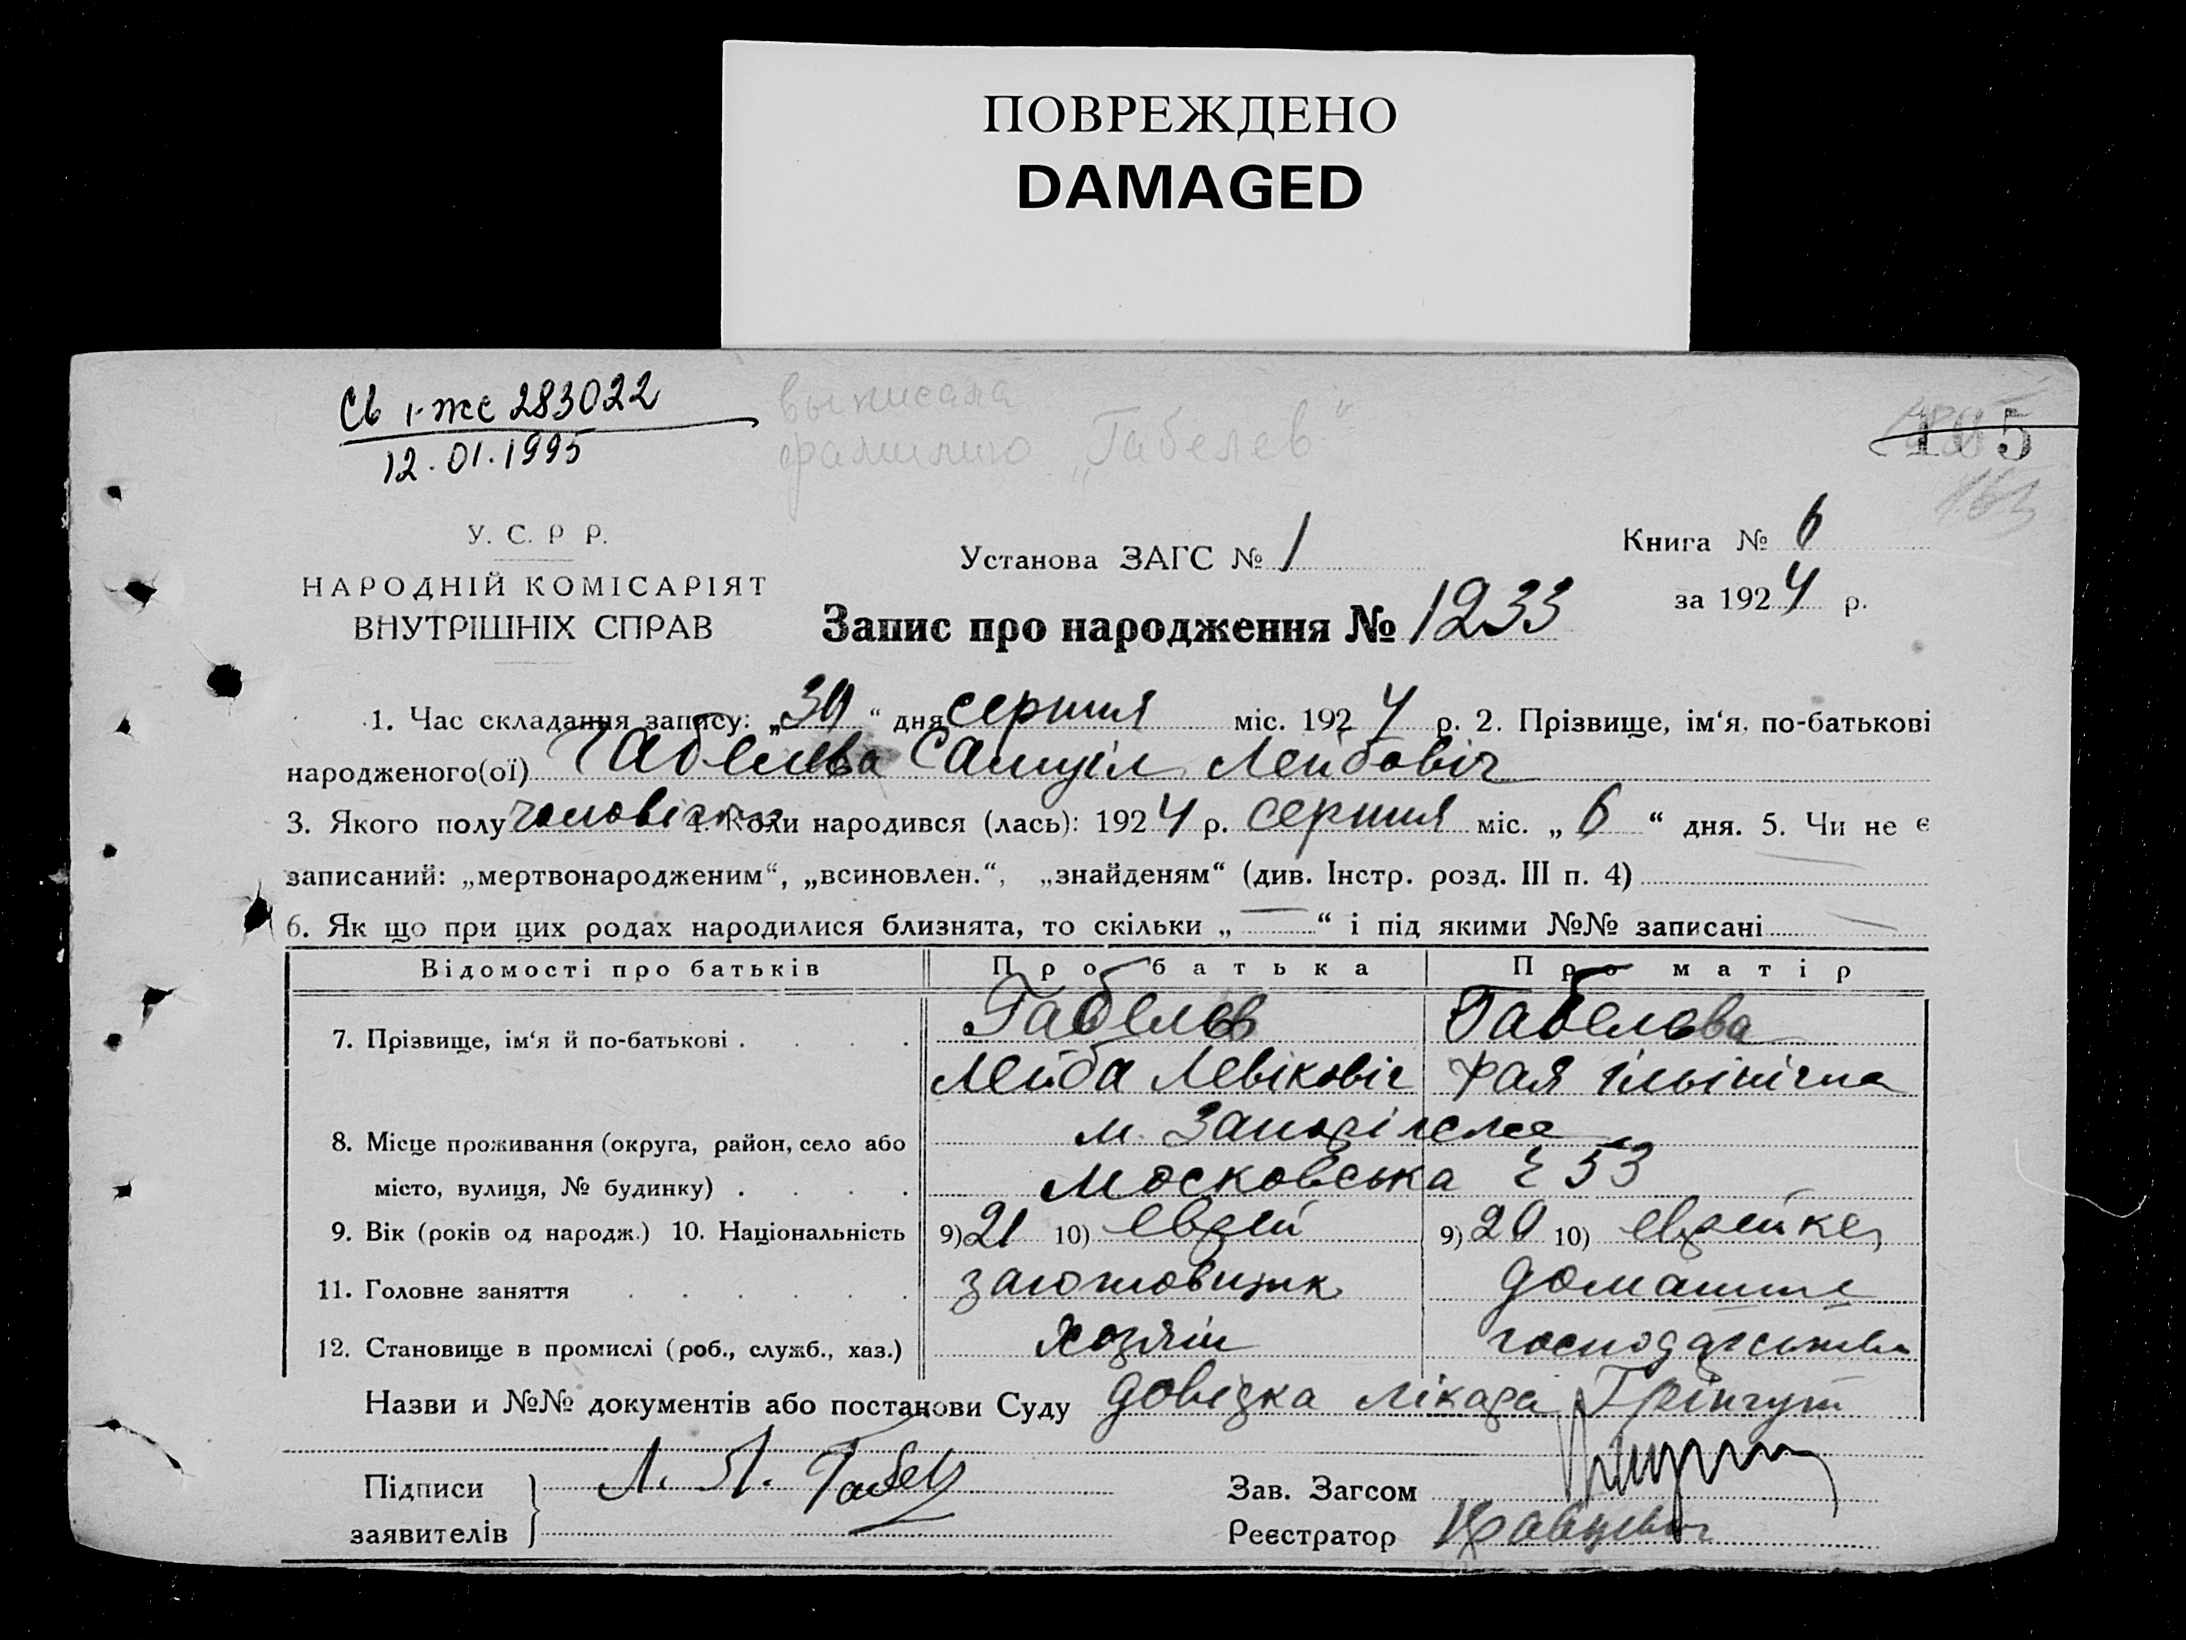 ПОВРЕЖДЕНО
DAMAGED
Св I-ЖС 283022
12.01.1995
выписала
фамилию „Габелев“
5
У. С. Р Р.
НАРОДНІЙ КОМІСАРІЯТ
ВНУТРІШНІХ СПРАВ
Установа ЗАГС № 1
Книга № 6
за 1924 р.
Запис про народження № 1233
1. Час складання запису: „30“ дня серпня міс. 1924 р. 2. Прізвище, ім‘я, по-батькові
народженого(ої) Габелева Самуіл Лейбовіч
3. Якого полу чоловічого 4. Коли народився (лась): 1924 р. серпня міс. „6“ дня. 5. Чи не є
записаний: „мертвонародженим“, „всиновлен.“, „знайденям“ (див. Інстр. розд. III п. 4)
6. Як що при цих родах народилися близнята, то скільки „ — “ і під якими №№ записані —
Відомості про батьків Про батька Про матір
7. Прізвище, ім‘я й по-батькові . . . . Габелев Габелева
Лейба Левікович Фая Ільінічна
8. Місце проживання (округа, район, село або м. Запоріжжя
місто, вулиця, № будинку) . . . . Московська 53
9. Вік (років од народж.) 10. Національність 9) 21 10) еврей 9) 20 10) еврейка
11. Головне заняття . . . . . . заготовщик домашнє
12. Становище в промислі (роб., служб., хаз.) хозяїн господарство
Назви и №№ документів або постанови Суду довідка лікаря Грінгут
Підписи
заявителів
Л. Л. Габел
Зав. Загсом
Реєстратор Кравцевич